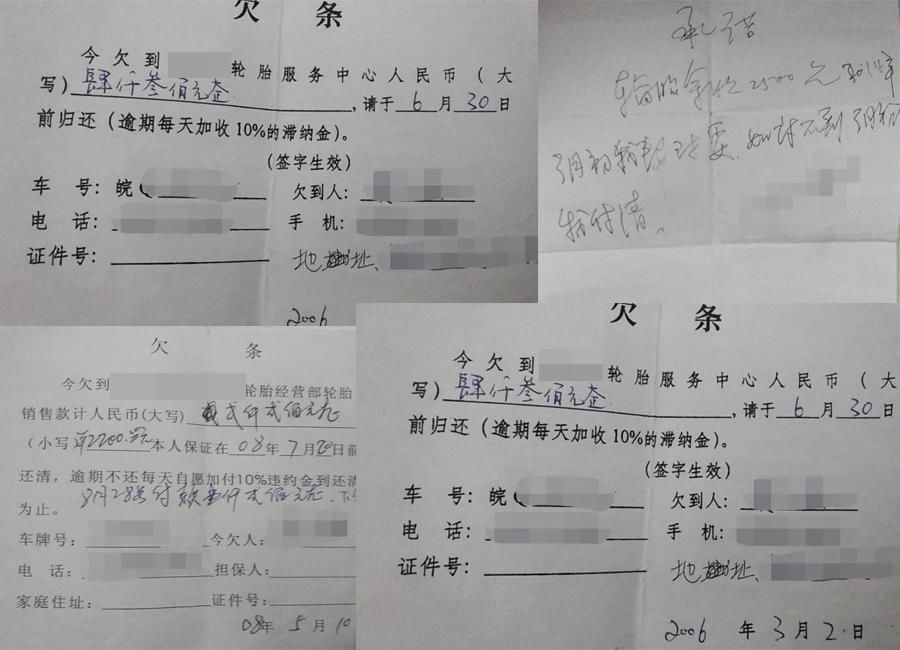 欠 条
今欠到
轮胎服务中心人民币(大
写)肆仟叁佰元整,请于6月30日
前归还(逾期每天加收10%的滞纳金)。
(签字生效)
车 号:皖 欠到人:
电 话: 手 机:
证件号: 地址、
2006
承诺
2500元
付清。
欠 条
今欠到
轮胎经营部轮胎
销售款计人民币(大写) 贰仟贰佰元正
(小写 2200 本人保证在08年7月20日前
还清,逾期不还每天自愿加付10%违约金到还清
为止。
付款壹仟贰佰元正.
车牌号: 今欠人:
电 话: 担保人:
家庭住址: 证件号:
08年5月10
欠 条
今欠到
轮胎服务中心人民币(大
写)肆仟叁佰元整,请于6月30日
前归还(逾期每天加收10%的滞纳金)。
(签字生效)
车 号:皖 欠到人:
电 话: 手 机:
证件号: 地址、
2006年3月2日